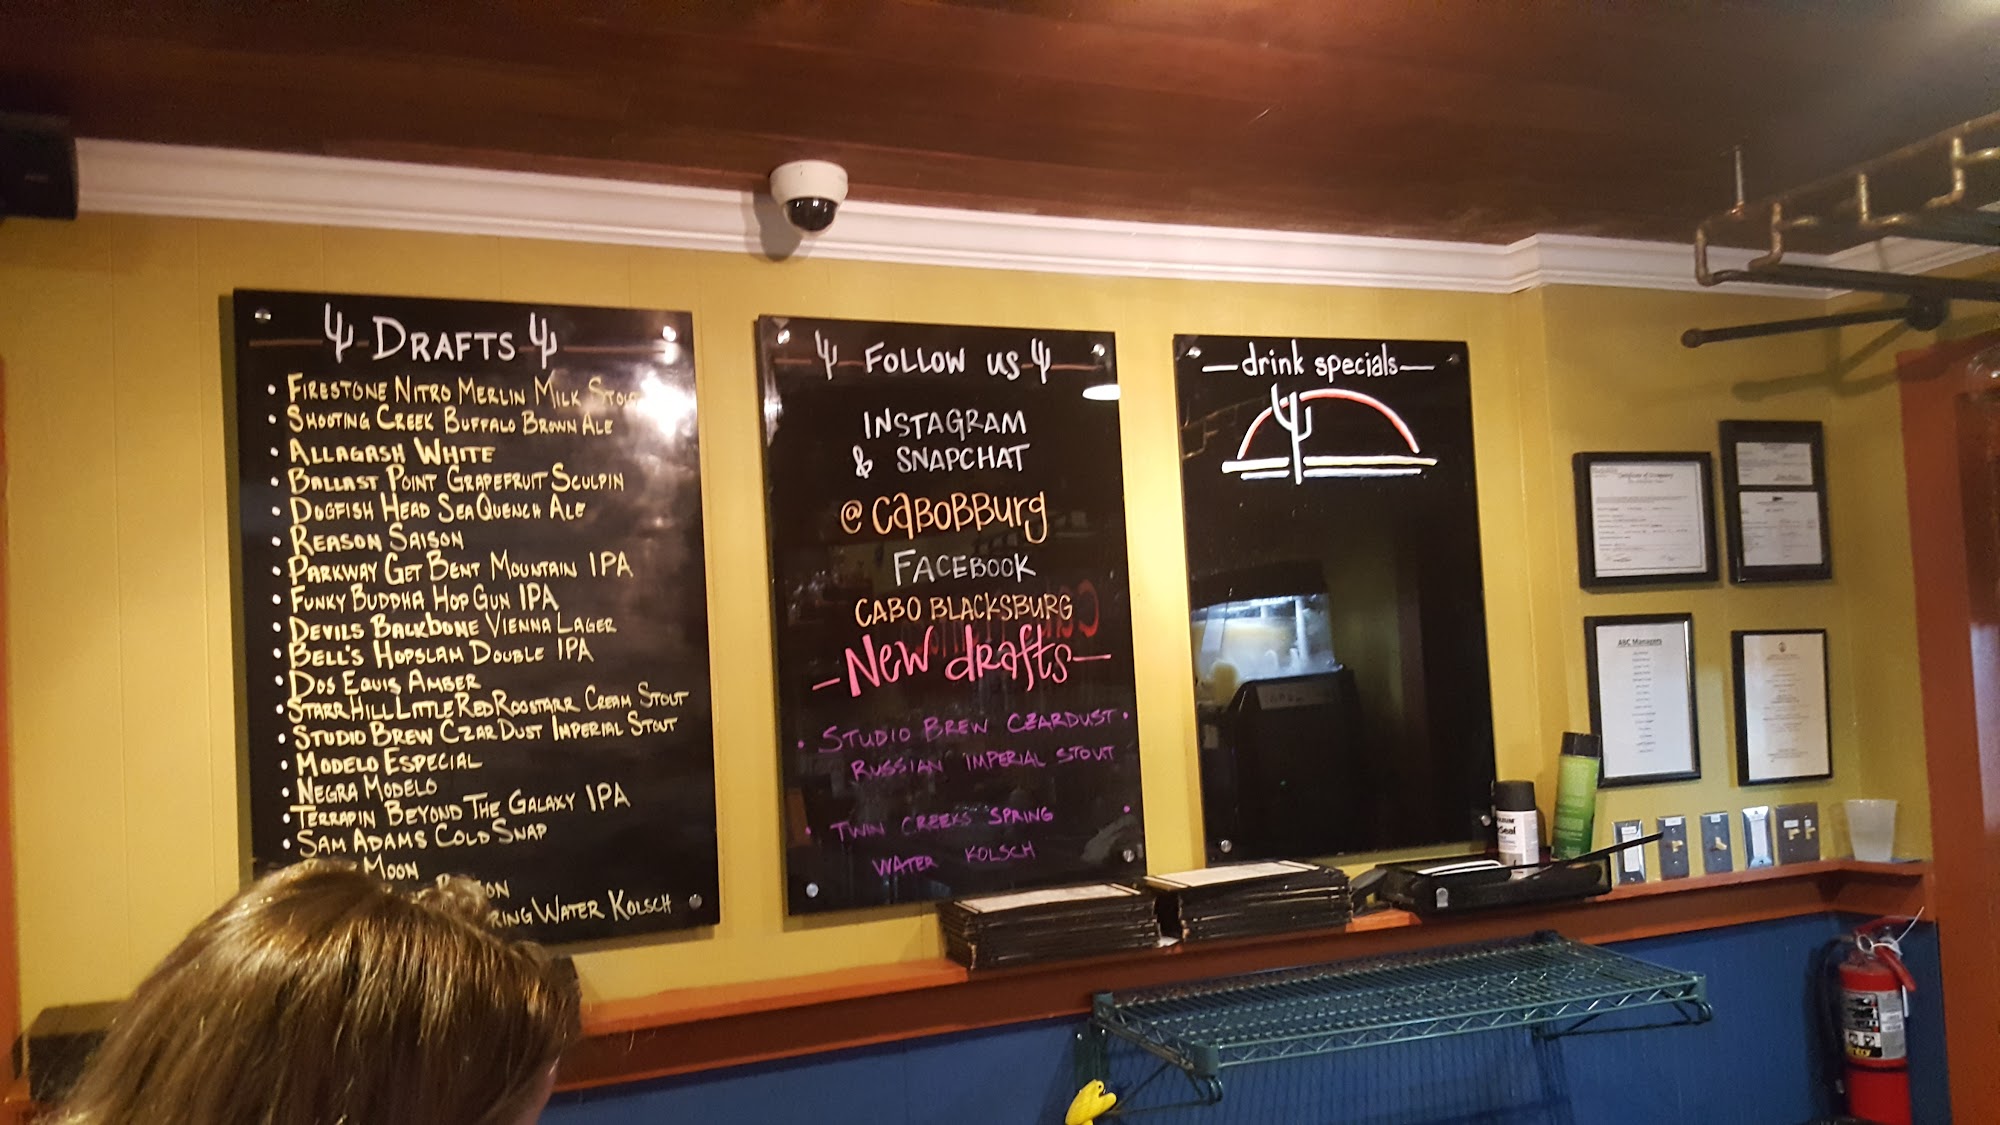 DRAFTS
• FIRESTONE NITRO MERLIN MILK STOUT
• SHOOTING CREEK BUFFALO BROWN ALE
• ALLAGASH WHITE
• BALLAST POINT GRAPEFRUIT SCULPIN
• DOGFISH HEAD SEAQUENCH ALE
• REASON SAISON
• PARKWAY GET BENT MOUNTAIN IPA
• FUNKY BUDDHA HOP GUN IPA
• DEVILS BACKBONE VIENNA LAGER
• BELL'S HOPSLAM DOUBLE IPA
• DOS EQUIS AMBER
• STARR HILL LITTLE RED ROOSTARR CREAM STOUT
• STUDIO BREW CZAR DUST IMPERIAL STOUT
• MODELO ESPECIAL
• NEGRA MODELO
• TERRAPIN BEYOND THE GALAXY IPA
• SAM ADAMS COLD SNAP
MOON
WATER KOLSCH
FOLLOW US
INSTAGRAM
& SNAPCHAT
@CABOBBURG
FACEBOOK
CABO BLACKSBURG
—New drafts—
• STUDIO BREW CZARDUST •
RUSSIAN IMPERIAL STOUT
• TWIN CREEKS SPRING •
WATER KOLSCH
—drink specials—
Certificate of Occupancy
ABC Managers